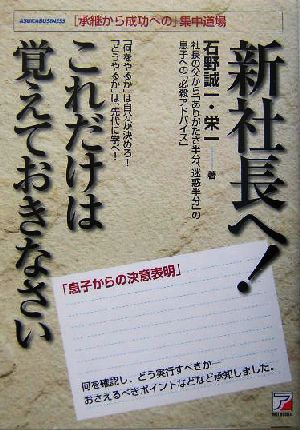 ASUKA BUSINESS
「承継から成功への」集中道場
新社長へ!
これだけは
覚えておきなさい
石野誠一・栄一――著
社長の父から「ありがたさ半分、迷惑半分」の
息子への「必殺アドバイス」
「何をやるか」は自分が決めろ!
「どうやるか」は、先代に学べ!
「息子からの決意表明」
何を確認し、どう実行すべきか―
おさえるべきポイントなどなど承知しました。
ア